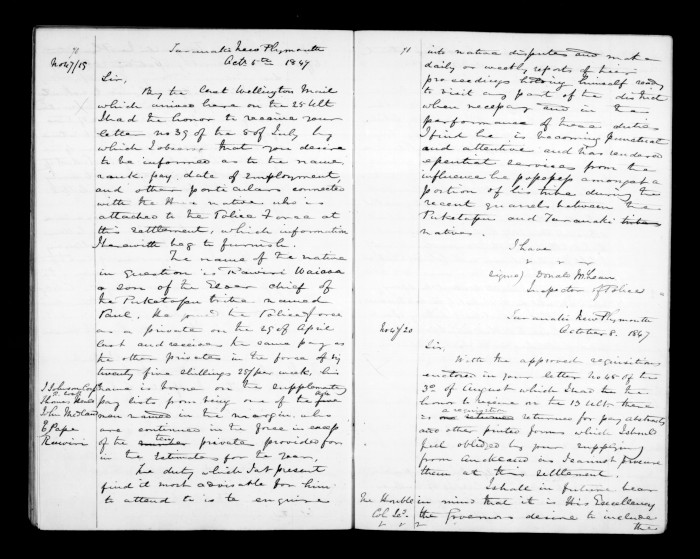 70
Taranaki New Plymouth
Octr 6th 1847
No 47/15
Sir,
By the last Wellington Mail
which arrived here on the 25 Ult
I had the honor to receive your
letter No 39 of the 8 of July by
which I observe that you desire
to be informed as to the name
rank pay, date of Employment,
and other particulars connected
with the native who is
attached to the Police Force at
this settlement, which information
I herewith beg to furnish.
The name of the native
in question is Rawiri Waiaua
a son of the Elder chief of
the Puketapu tribe named
Paul, He joined the Police force
as a private on the 29 of April
last and receives the same pay as
the other privates in the force of viz
twenty five shillings 25/ per week, his
name is borne on the supplementary
pay lists from being one of the
men named in the margin, who
are continued in the force in excess
of the number privates provided for
in the Estimates for the year,
The duty which I at present
find it most advisable for him
to attend to is to enquire
I Johnson Corpl
Thomas
John Medland
E Pope
Rawiri
71
into native disputes and make
daily or weekly reports of their
proceedings holding himself ready
to visit any part of the district
when necessary and in the
performance of these duties
I find he is becoming punctual
and attentive and has rendered
essential services from the
influence he possesses amongst a
portion of his tribe during the
recent quarrel between the
Puketapu and Taranaki tribes
natives.
I have
Signed) Donald McLean
Inspector of Police
Taranaki New Plymouth
October 8. 1847
No 47/20
Sir,
With the approved requisitions
enclosed in your letter No 48 of the
3d of August which I had the
honor to receive on the 13 Ult there
is a requisition returned for pay abstracts
and other printed forms which I should
feel obliged by your supplying
from Auckland as I cannot procure
them at this settlement.
I shall in future bear
in mind that it is His Excellency
the Governors desire to include
the
The Honble
Col Sec.